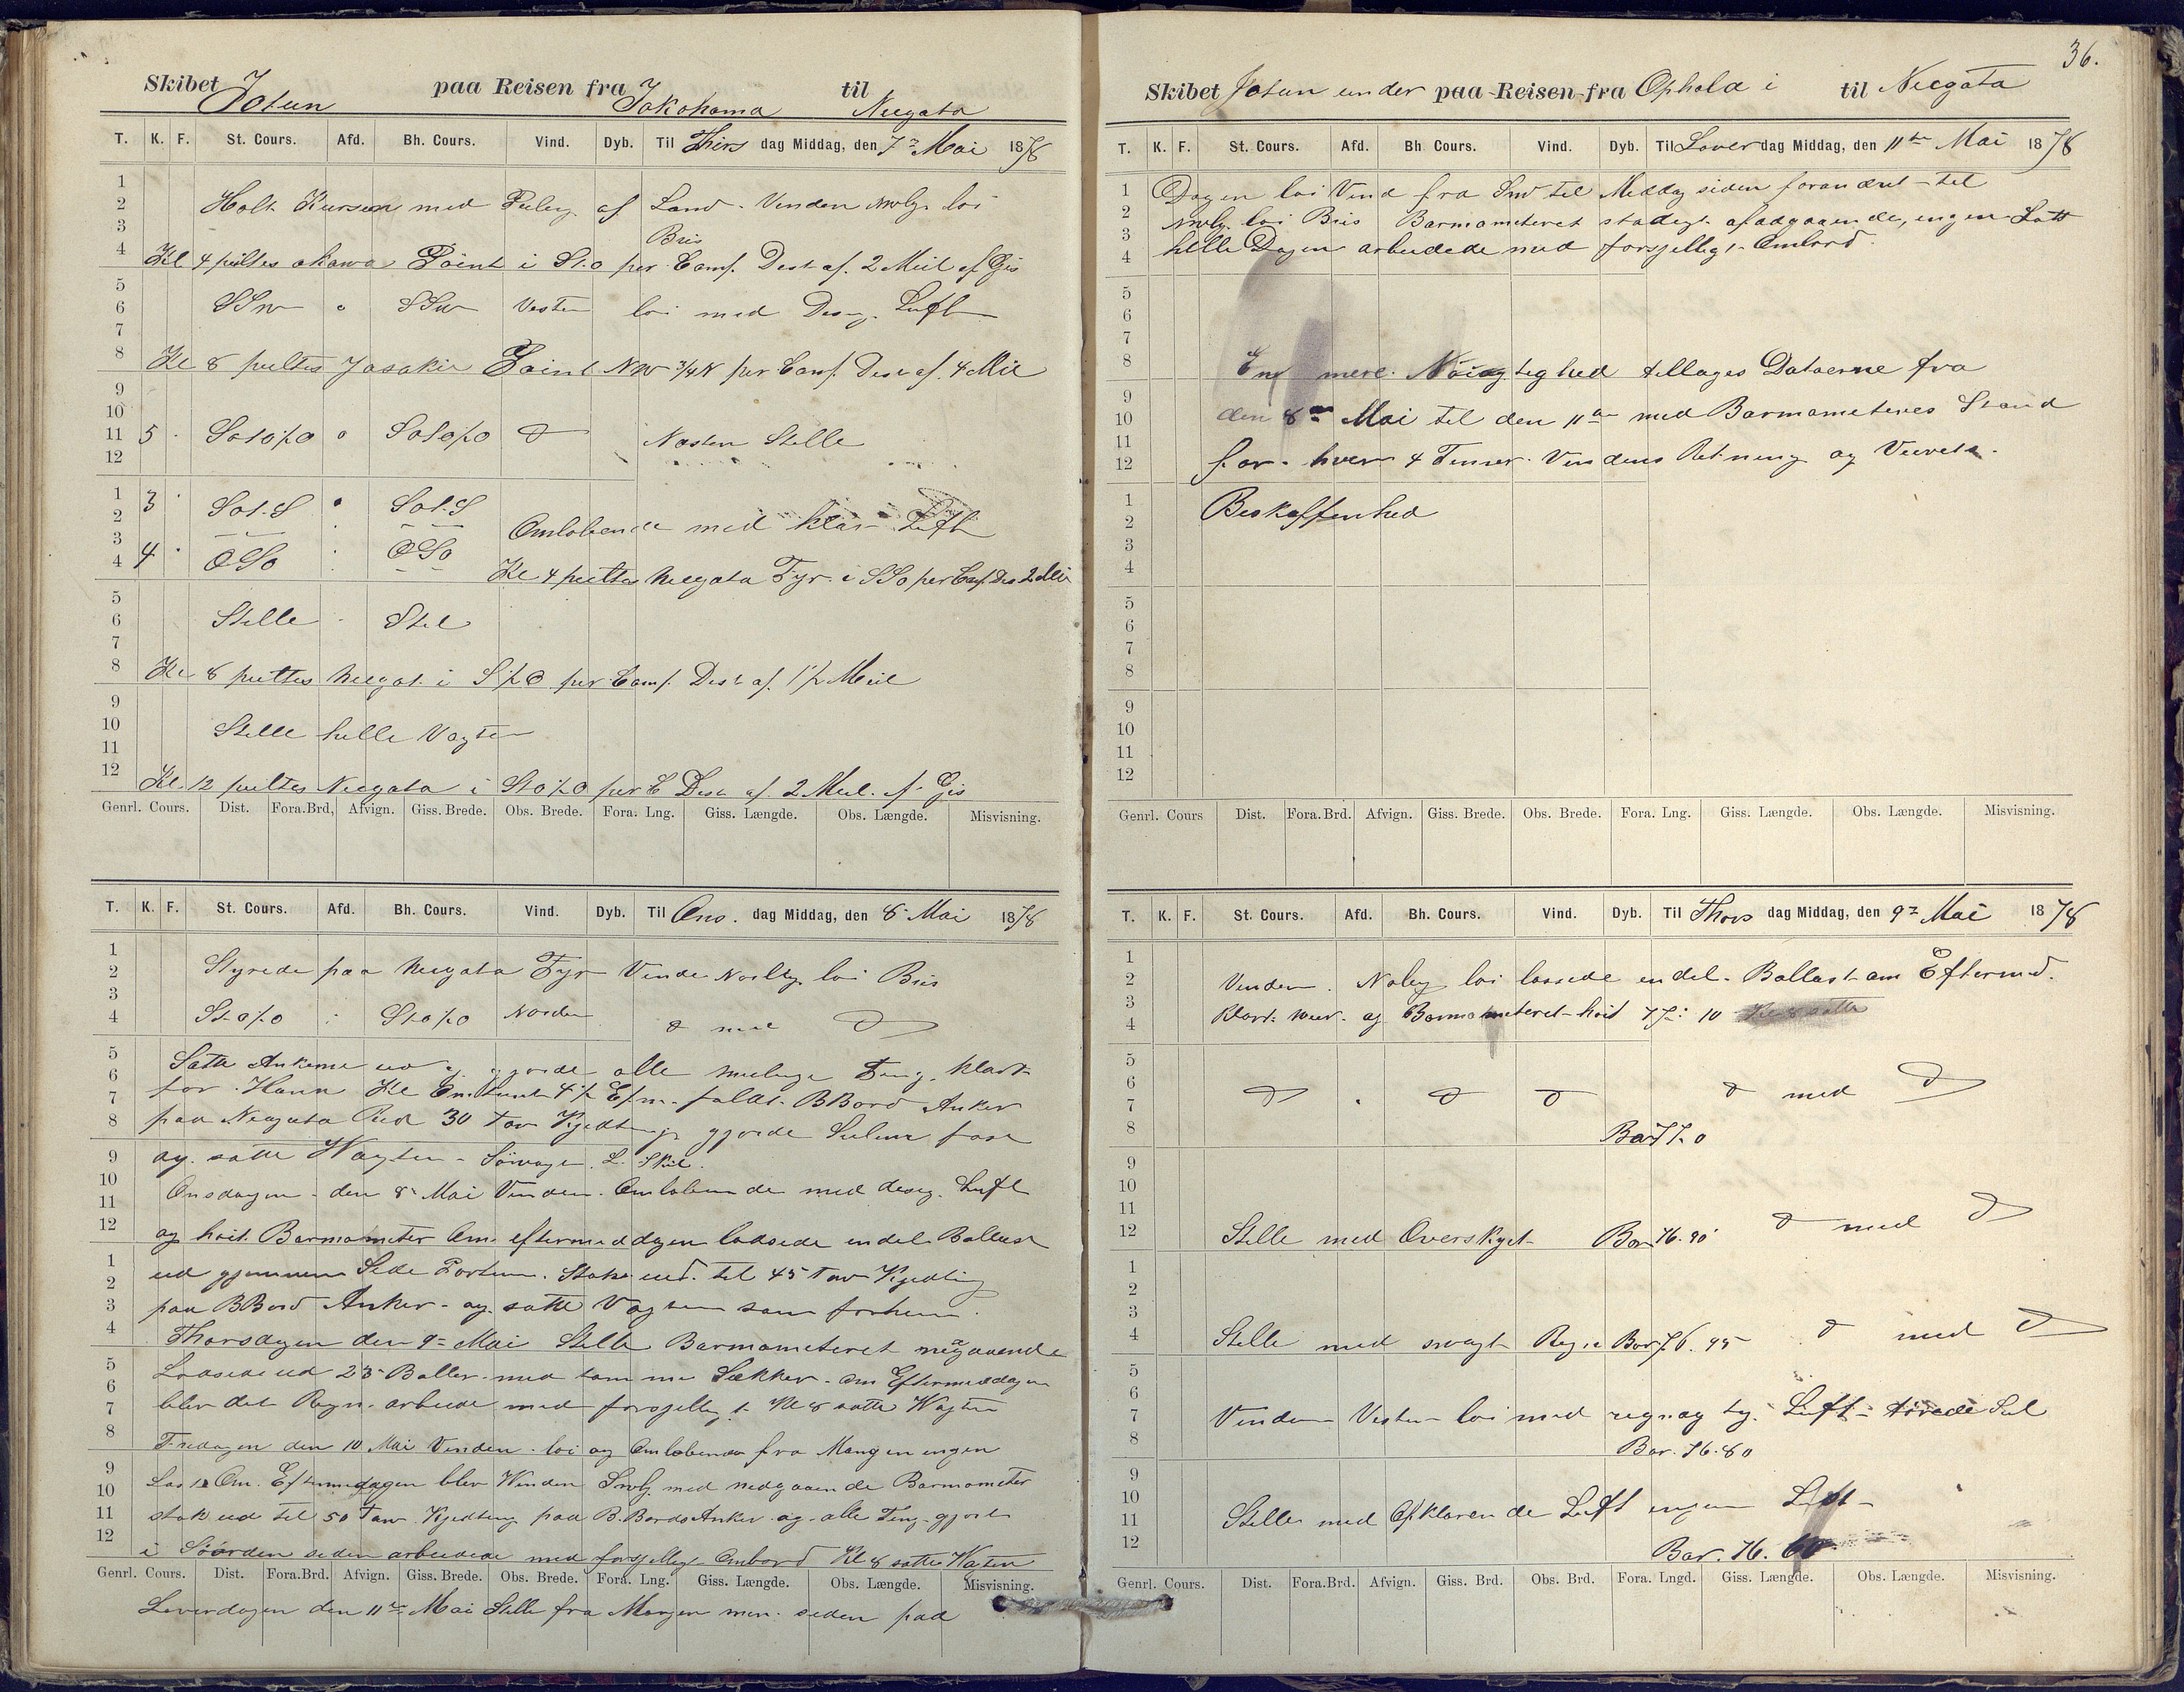 Skibet Jotun paa Reisen fra Jokohama til Neegata
T. K. F. St. Cours. Afd. Bh. Cours. Vind. Dyb. Til Thirs dag Middag, den 7de Mai 1878
1
2 Holt Kursen med Peiling af Land. Vinden NWlg. loi
3 Bris
4 Kl 4 peiltes okawa Point i StO per Comp. Dist af. 2 Miil af Gis
5
6 SSW " SSW Vesten loi med Disig. Luft
7
8 Kl 8 peiltes Jasakie Point NW 3/4 N per Comp. Dist af. 4 Mil
9
10
11 5 SOtO½O " SOtO½O Næsten Stille
12
1 3 SOt.S " SOt.S
2 Omlobende med klar Luft
3 4 OSO OSO
4 Kl 4 peiltes Neegata Fyr i SSO per Comp. Dis 2 Mil
5
6 Stille Stil
7
8 Kl 8 peiltes Neegat. i S½O per Comp. Dist af. 1½ Miil
9
10 Stille helle Vagten
11
12 Kl. 12 peiltes Neegata i StO½O per C Dist af. 2 Miil. af Gis
Genrl. Cours. Dist. Fora.Brd, Afvign. Giss. Brede. Obs. Brede. Fora. Lng. Giss. Længde. Obs. Længde. Misvisning.
T. K. F. St. Cours. Afd. Bh. Cours. Vind. Dyb. Til Ons. dag Middag, den 8 Mai 1878
1
2 Styrede paa Neegata Fyr Vinde Nordlig. loi Bris
3
4 StO½O StO½O Norden d med d
5 Satte Ankerne ud og gjorde alle mulige Ting. klart
6 for Havn Kl Omtrent 4½ Efm. faldt BBord Anker
7
8 paa Neegata Red 30 Tav Kjedting gjorde Seilene fast
9 og. satte Wagten
10 Onsdagen den 8 Mai Vinden Omlobende med disig. Luft
11
12 og hoit Barmometer Om eftermeddagen lossede endel Ballast
1 ud gjennem Side Porten. Stak ud. til 45 Tav Kjedting
2
3 paa BBord Anker og. satte Vagten som forhen.
4 Thorsdagen den 9de Mai Stille Barmometeret negaaende
5 Lossede ud 23 Baller med tomme Sækker. Om Eftermeddagen
6
7 blev det Regn. arbeide med forsjellig t Kl 8 satte Wagten
8 Fredagen den 10 Mai Vinden loi og Omlobende fra Morgen ingen
9 Last Om. Eftermedagen blev Winden SWlg. med nedgaaende Barmometer
10
11 stak ud til 50 Tav Kjedting paa B.Bords Anker og alle Ting gjort
12 i Soorden siden arbeidede med forsjellig Ombord Kl 8 satte Wagten
Genrl. Cours. Dist. Fora.Brd. Afvign. Giss. Brede. Obs. Brede. Fora. Lng. Giss. Længde. Obs. Længde. Misvisning.
Loverdagen den 11te Mai Stille fra Morgen men. siden paa
36.
Skibet Jotun under paa Reisen fra Ophold i til Neegata
T. K. F. St. Cours. Afd. Bh Cours. Vind. Dyb. Til Lover dag Middag, den 11te Mai 1878
1 Dagen loi Vind fra SW til Middag siden forandret til
2 NWlg. loi Bris Barmometeret stadigt afadgaaende, ingen Last
3 helle Dagen arbeidede med forsjelligt Ombord.
4
5
6
7
8 mere Nöiagtighed tillages Dataerne fra
9
10 den 8de Mai til den 11te med Barmometeres Stand
11
12 for hver 4 Timer Vindens Retning og Veirets
1 Beskaffenhed
2
3
4
5
6
7
8
9
10
11
12
Genrl. Cours Dist. Fora.Brd. Afvign. Giss. Brede. Obs. Brede. Fora. Lng. Giss. Længde. Obs. Længde. Misvisning.
T. K. F. St. Cours. Afd. Bh. Cours. Vind. Dyb. Til Thors dag Middag, den 9de Mai 1878
1
2 Vinden. Noleg loi lossede endel Ballast om Eftermd.
3
4 Klart Weer og Barmometeret hoit 77. 10 Kl 8 satte
5
6 d " d d d med d
7
8 Bar 77. 0
9
10
11
12 Stille med Overskyet Bar 76. 90 d med d
1
2
3
4 Stille med svagt Regn Bar 76. 95 d med d
5
6
7 Vinden Vesten loi med regnag tg. Luft törede Seil
8 Bar. 76. 80
9
10
11 Stille med Opklarende Luft ingen Last
12 Bar. 76. 60
Genrl. Cours. Dist. Fora.Brd. Afvign. Giss. Brd. Obs. Brd. Fora. Lngd. Giss. Længde. Obs. Længde. Misvisning.